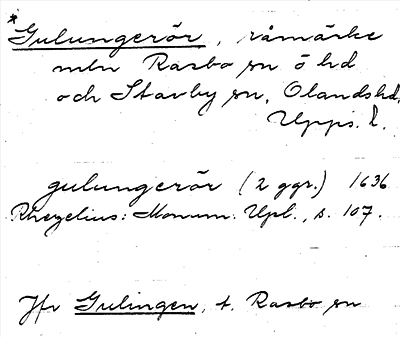 *
Gulungerör, råmärke
mln Rasbo sn ö hd
och Stavby sn, Olandshd,
Upps. l.
gulungerör (2 ggr.) 1636
Rhezelius: Monum. Upl., s. 107.
Jfr Gulingen, t. Rasbo sn